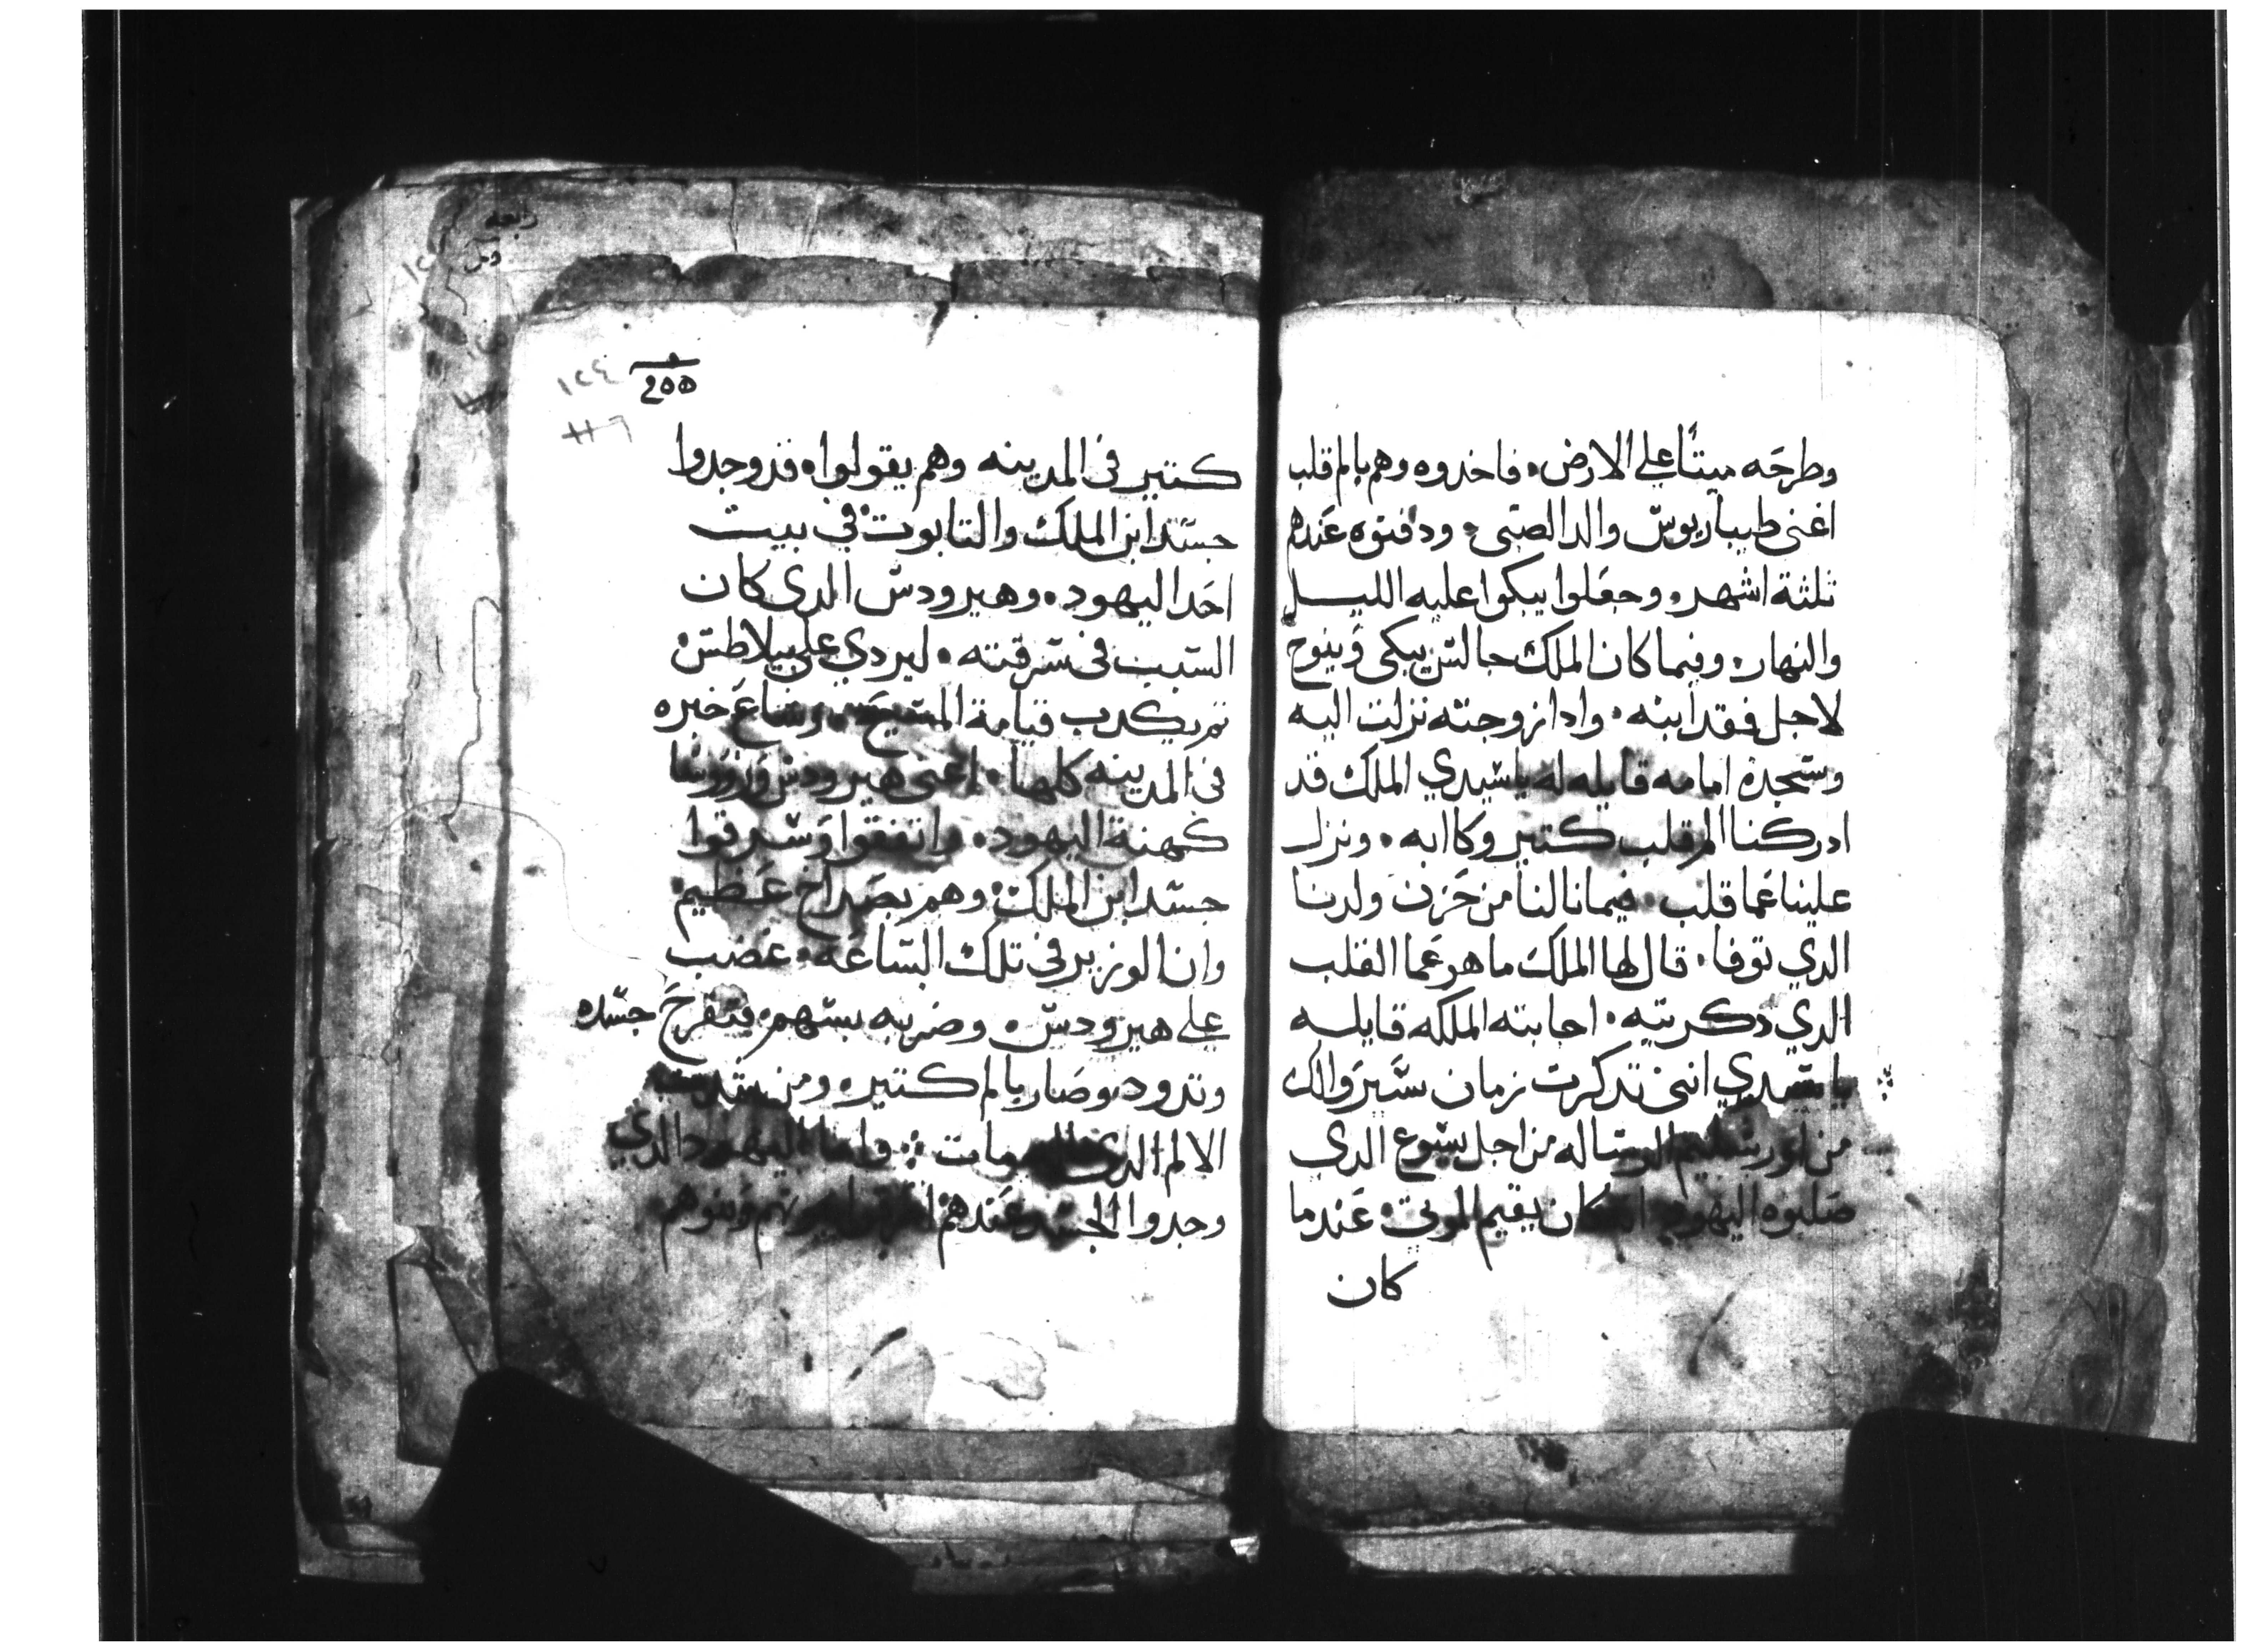 وطرحَه ميتاً علي الارض، فاخدوه وهم بالم قلب
اغنى طيباريوس والد الصبى، ودفنوه عَندهم
ثلثة اشهر، وجعَلوا يبكوا عليه الليل
والنهار، وفيما كان الملك جالس يبكى وَينوح
لاجل فقد ابنه، وادا زوجته نزلت اليه
وسجدة امامه قايله له ياسَيدي الملك قد
ادركنا الم قلب كتير وكاابه، ونزل
علينا عَما قلب، فيما نالنا من حَزن ولدنا
الدي توفا، قال لها الملك ما هو عَما القلب
الدي دكرتيه، اجابته الملكه قايله
ياسَيدي انني تدكرت زمان سَير والك
من اورشليم الرسَاله من اجل يسَوع الدي
صَلبوه اليهود كان يقيم الموتى، عَندما
كان
١٢٤
كتير فى المدينه وهم يقولوا، قد وجدوا
جسَد ابن الملك والتابوت في بيت
احَد اليهود، وهيرودسَ الدى كان
السَبب فى سَرقته، ليردي علي بيلاطسَ
تم يكدب قيامة المسَيحَ، وشاعَ خبره
في المدينه كلها، اعَنى هيرودسَ وَروَسَا
كهنة اليهود، واتفقوا وَسَرقوا
جسَد ابن الملك، وهم بصَراخ عَظيم
وان الوزير في تلك السَاعَه، غضب
علي هيرودسَ، وضربه بسَهم، فتقرحَ جسَده
وتدود وصَار بالم كتير، ومن شدت
الالم الدى مات؛ واما اليهود الدي
وجدوا الجسَد عَندهم وبنوهم